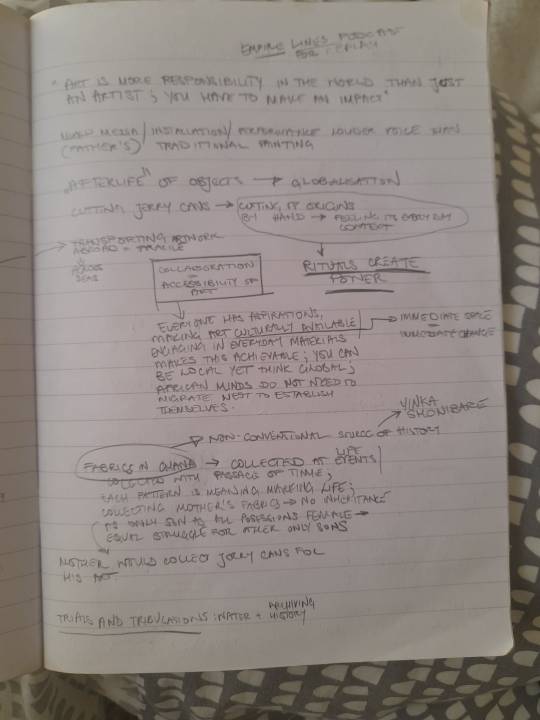 EMPIRE LINES PODCAST
FOR
"ART IS MORE RESPONSIBILITY IN THE WORLD THAN JUST
AN ARTIST; YOU HAVE TO MAKE AN IMPACT"
MEDIA / INSTALLATION / PERFORMANCE LOUDER VOICE THAN
(FATHER'S) TRADITIONAL PAINTING
"AFTERLIFE" OF OBJECTS → GLOBALISATION
CUTTING JERRY CANS → CUTTING IT ORIGINS
BY HAND → FEELING ITS EVERYDAY
CONTEXT
→ TRANSPORTING ARTWORK
ABROAD = FRAGILE
ACROSS
SEAS
COLLABORATION
=
ACCESSIBILITY OF
ART
RITUALS CREATE
POWER
EVERYONE HAS ASPIRATIONS,
MAKING ART CULTURALLY AVAILABLE
ENGAGING IN EVERYDAY MATERIALS
MAKES THIS ACHIEVABLE; YOU CAN
BE LOCAL YET THINK GLOBAL;
AFRICAN MINDS DO NOT NEED TO
MIGRATE WEST TO ESTABLISH
THEMSELVES.
→ IMMEDIATE SPACE
=
IMMEDIATE CHANGE
YINKA
SHONIBARE
NON-CONVENTIONAL SOURCE OF HISTORY
FABRICS IN GHANA → COLLECTED AT LIFE EVENTS
COLLECTED WITH PASSAGE OF TIME,
EACH PATTERN IS MEANING MARKING LIFE;
COLLECTING MOTHER'S FABRICS → NO INHERITANCE
AS ONLY SON TO ALL POSESSIONS FEMALE →
EQUAL STRUGGLE FOR OTHER ONLY SONS
MOTHER WOULD COLLECT JERRY CANS FOR
HIS ART
TRIALS AND TRIBULATIONS WATER + ARCHIVING
HISTORY